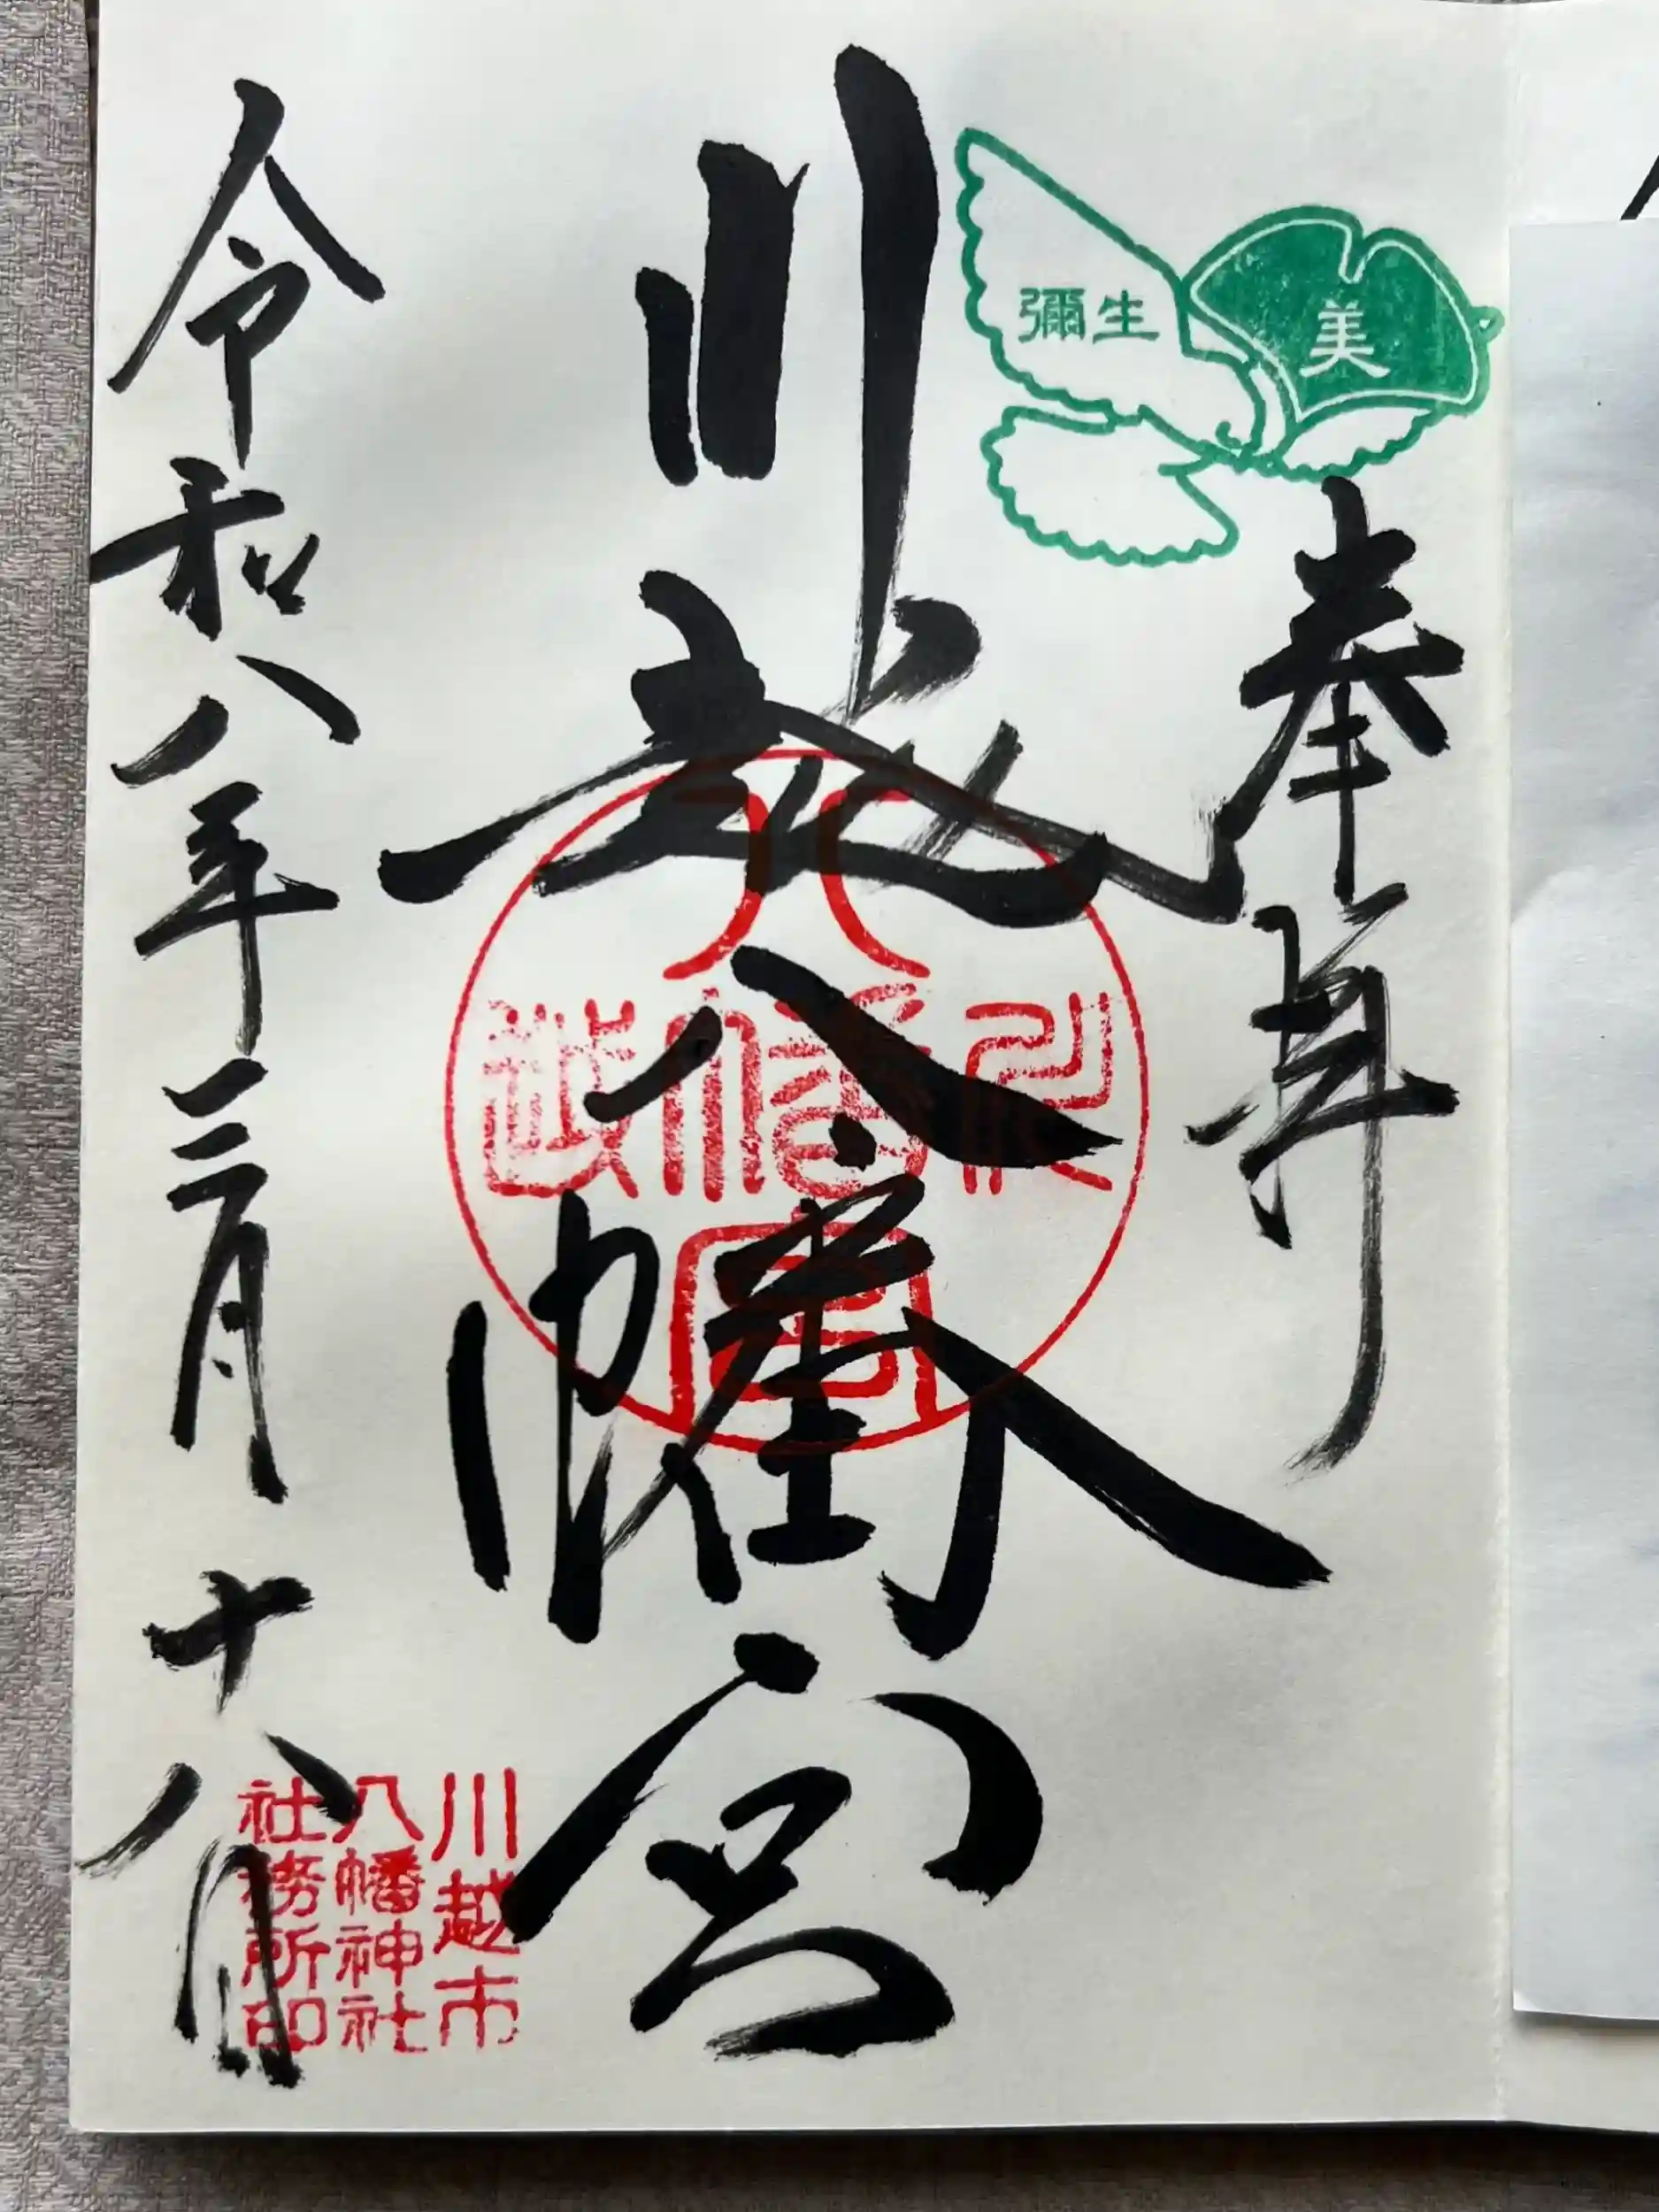 美
彌生
奉拝
川越八幡宮
川越
八幡宮
令和八年三月十八日
川越市
八幡神社
社務所印